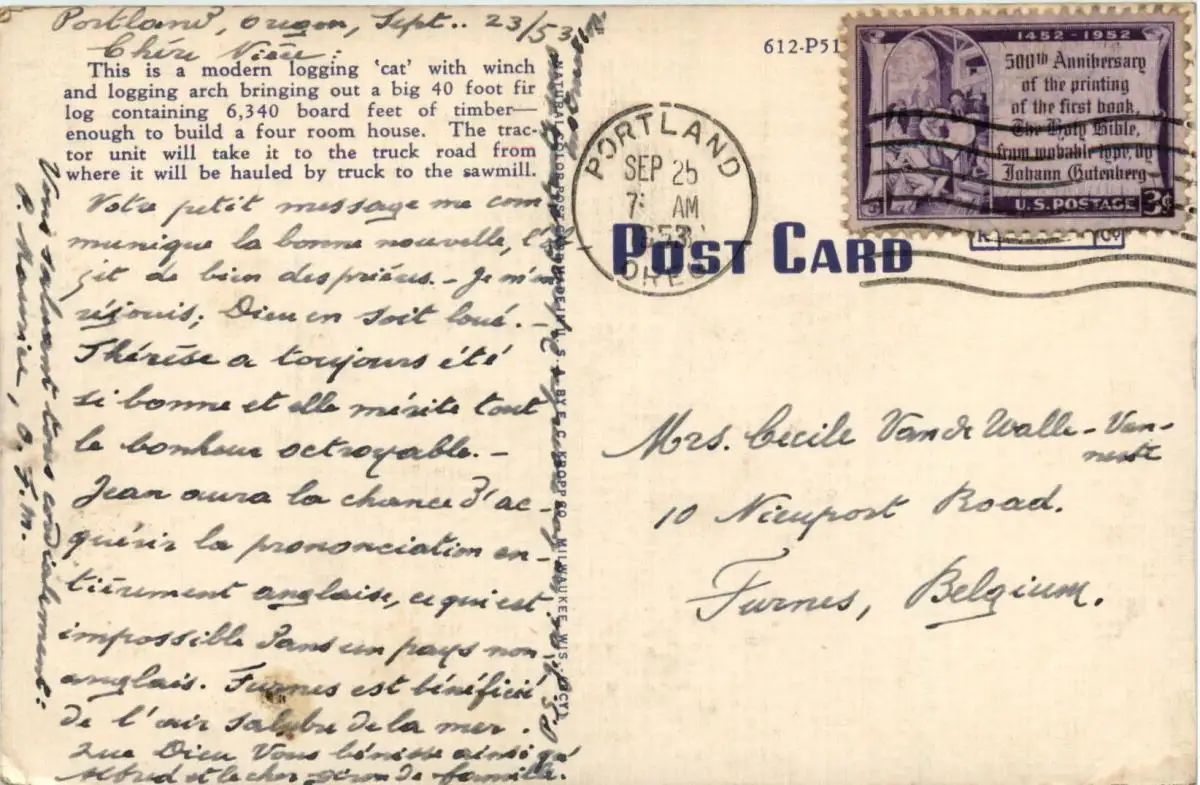 Portland, Oregon, Sept.. 23/53
Chère Nièce:
This is a modern logging 'cat' with winch
and logging arch bringing out a big 40 foot fir
log containing 6,340 board feet of timber—
enough to build a four room house. The trac-
tor unit will take it to the truck road from
where it will be hauled by truck to the sawmill.
Votre petit message me com
munique la bonne nouvelle,
de bien des prières. - Je m'en
réjouis; Dieu en soit loué. -
Thérèse a toujours été
si bonne et elle mérite tout
le bonheur octroyable. -
Jean aura la chance d'ac-
quérir la prononciation en-
tièrement anglaise, ce qui est
impossible dans un pays non-
anglais. Furnes est bénéficié
de l'air salubre de la mer.
Que Dieu Vous bénisse ainsi qu'
Alfred et le cher de famille.
Vous saluant tous cordialement:
P. Maurice, O.F.M.
P.S.
NATURAL COLOR POST CARD MADE IN U.S.A. BY E. C. KROPP CO., MILWAUKEE, WIS.
612-P51
PORTLAND
SEP 25
7 AM
1953
OREG
1452-1952
500th Anniversary
of the printing
of the first book,
The Holy Bible,
from movable type, by
Johann Gutenberg
U.S. POSTAGE 3¢
POST CARD
Mrs. Cecile Van de Walle - Van-
neste
10 Nieuport Road.
Furnes, Belgium.